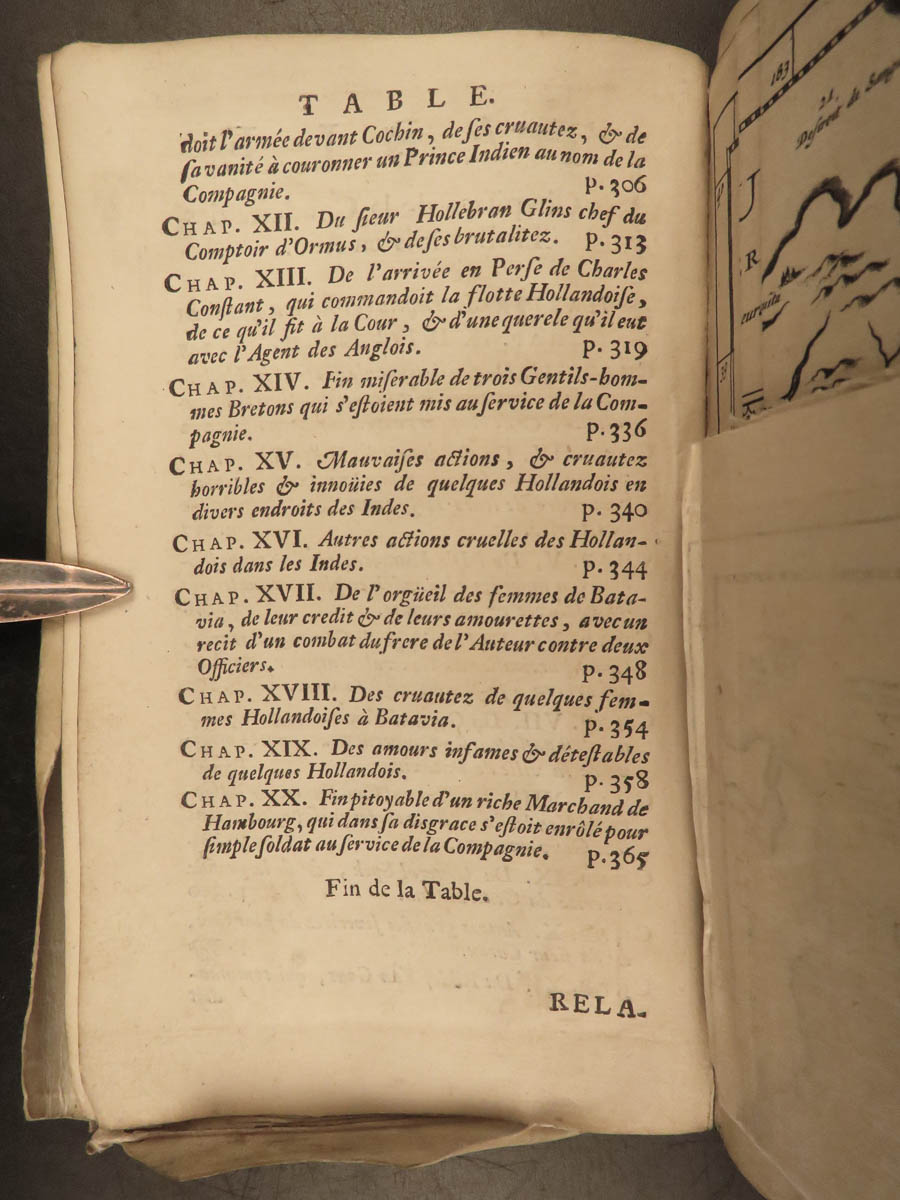 TABLE.
doit l'armée devant Cochin, de ses cruautez, & de
sa vanité à couronner un Prince Indien au nom de la
Compagnie. p. 306
CHAP. XII. Du sieur Hollebran Glins chef du
Comptoir d'Ormus, & de ses brutalitez. p. 313
CHAP. XIII. De l'arrivée en Perse de Charles
Constant, qui commandoit la flotte Hollandoise,
de ce qu'il fit à la Cour, & d'une querele qu'il eut
avec l'Agent des Anglois. p. 319
CHAP. XIV. Fin miserable de trois Gentils-hom-
mes Bretons qui s'estoient mis au service de la Com-
pagnie. p. 336
CHAP. XV. Mauvaises actions, & cruautez
horribles & innoüies de quelques Hollandois en
divers endroits des Indes. p. 340
CHAP. XVI. Autres actions cruelles des Hollan-
dois dans les Indes. p. 344
CHAP. XVII. De l'orgüeil des femmes de Bata-
via, de leur credit & de leurs amourettes, avec un
recit d'un combat du frere de l'Auteur contre deux
Officiers. p. 348
CHAP. XVIII. Des cruautez de quelques fem-
mes Hollandoises à Batavia. p. 354
CHAP. XIX. Des amours infames & détestables
de quelques Hollandois. p. 358
CHAP. XX. Fin pitoyable d'un riche Marchand de
Hambourg, qui dans sa disgrace s'estoit enrôlé pour
simple soldat au service de la Compagnie. p. 365
Fin de la Table.
RELA-
183
21
J
R